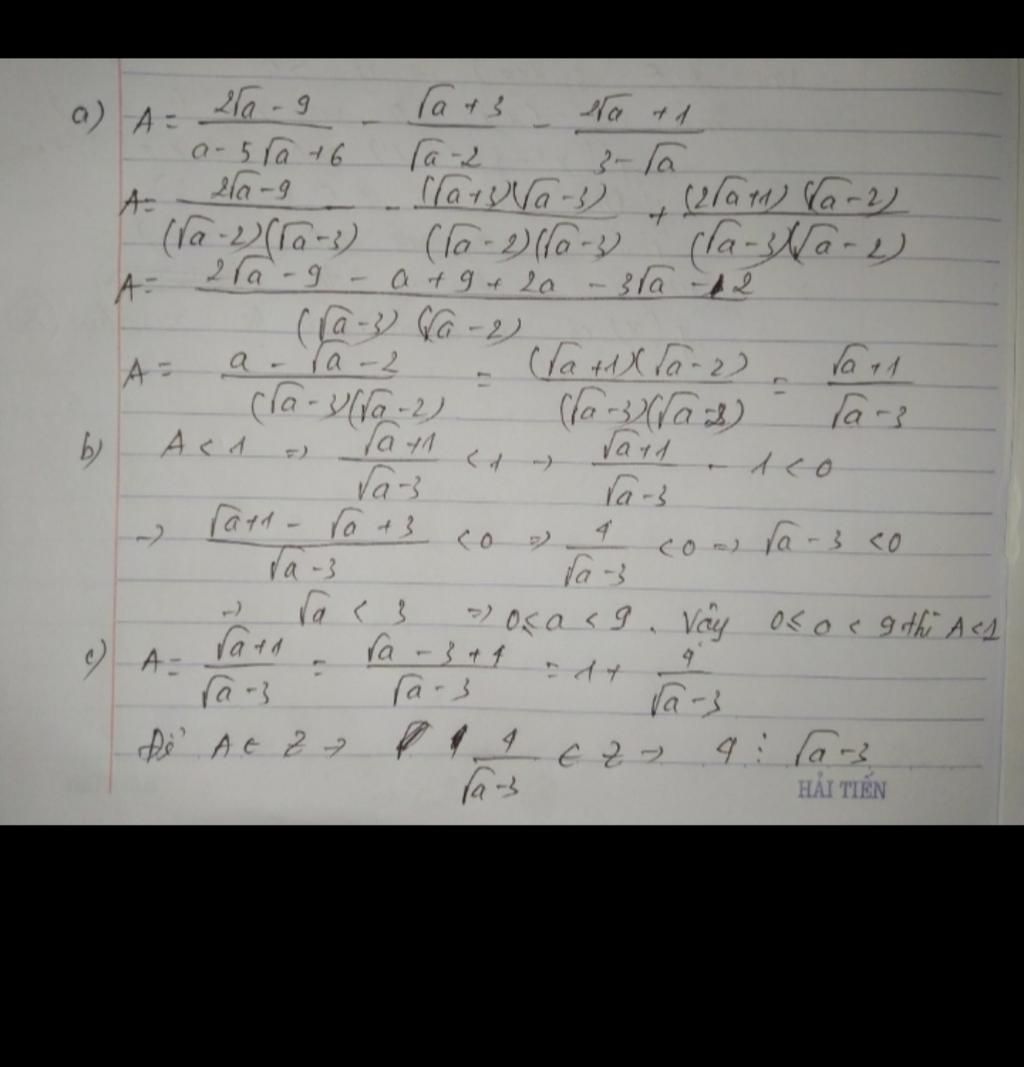 a) A = (2√a - 9)/(a - 5√a + 6) - (√a + 3)/(√a - 2) - (2√a + 1)/(3 - √a)
A = (2√a - 9)/((√a - 2)(√a - 3)) - ((√a + 3)(√a - 3))/((√a - 2)(√a - 3)) + ((2√a + 1)(√a - 2))/((√a - 3)(√a - 2))
A = (2√a - 9 - a + 9 + 2a - 3√a - 2)/((√a - 3)(√a - 2))
A = (a - √a - 2)/((√a - 3)(√a - 2)) = ((√a + 1)(√a - 2))/((√a - 3)(√a - 2)) = (√a + 1)/(√a - 3)
b) A < 1 => (√a + 1)/(√a - 3) < 1 -> (√a + 1)/(√a - 3) - 1 < 0
-> (√a + 1 - √a + 3)/(√a - 3) < 0 => 4/(√a - 3) < 0 => √a - 3 < 0
-> √a < 3 => 0 ≤ a < 9. Vậy 0 ≤ a < 9 thì A < 1
c) A = (√a + 1)/(√a - 3) = (√a - 3 + 4)/(√a - 3) = 1 + 4/(√a - 3)
Để A ∈ Z -> 4/(√a - 3) ∈ Z -> 4 ⋮ √a - 3
HẢI TIẾN